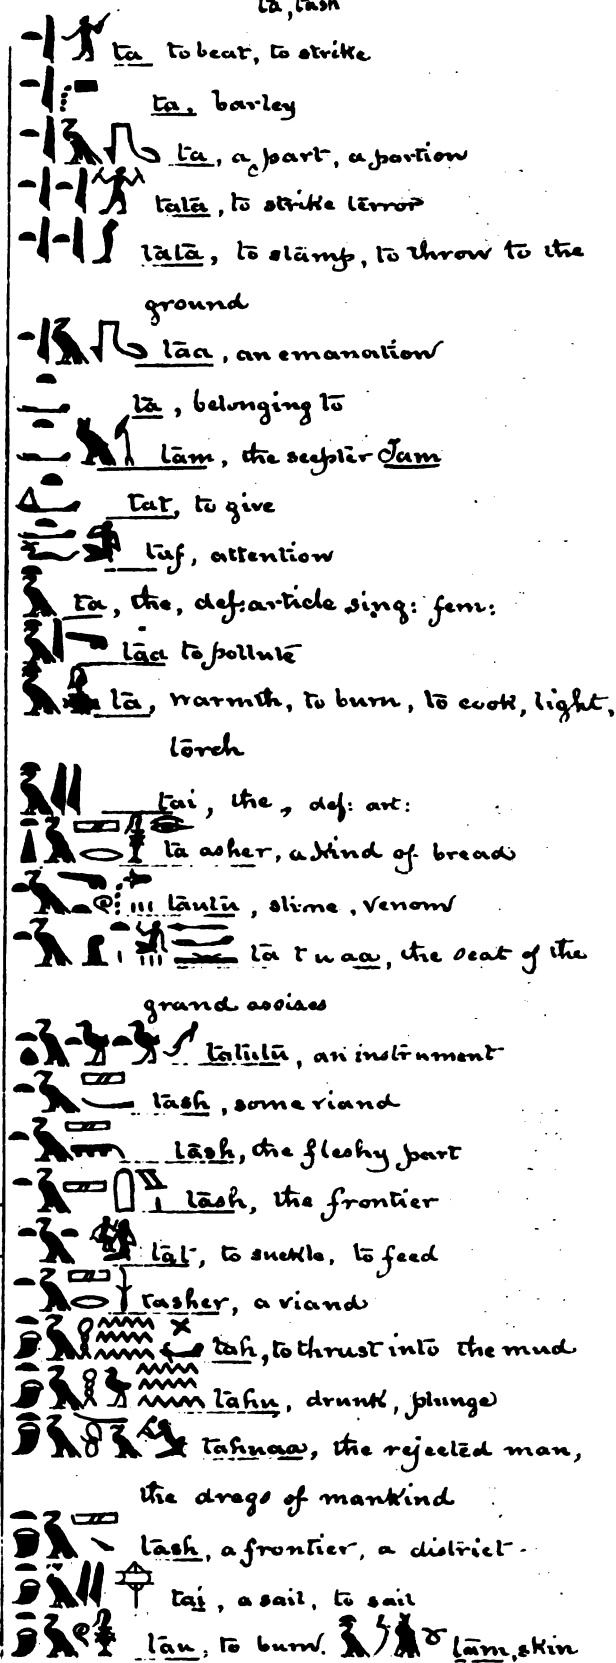 ta, tash
ta to beat, to strike
ta, barley
ta, a part, a portion
tata, to strike terror
tata, to stamp, to throw to the
ground
taa, an emanation
ta, belonging to
tam, the scepter Jam
tat, to give
taf, attention
ta, the, def: article sing: fem:
taa to pollute
ta, warmth, to burn, to cook, light,
torch
tai, the, def: art:
ta asher, a kind of bread
tautu, slime, venom
ta t u aa, the seat of the
grand assises
tatutu, an instrument
tash, some viand
tash, the fleshy part
tash, the frontier
tat, to suckle, to feed
tasher, a viand
tah, to thrust into the mud
tahu, drunk, plunge
tahuaa, the rejected man,
the dregs of mankind
tash, a frontier, a district
tai, a sail, to sail
tau, to burn. tam, skin